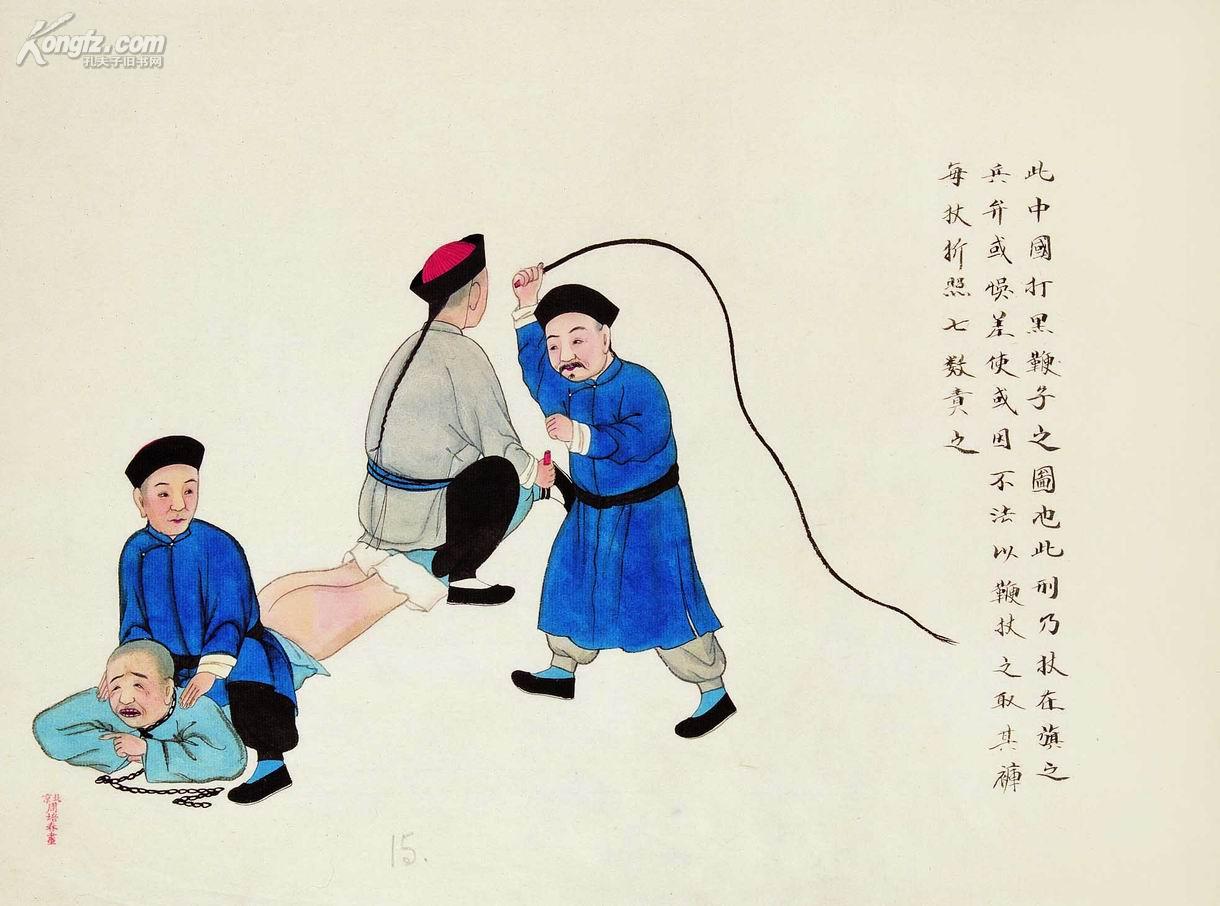 Kongfz.com
孔夫子旧书网
此中國打黑鞭子之圖也此刑乃杖在旗之
兵弁或悞差使或因不法以鞭杖之取其褲
每杖折照七数責之
北京周培春畫
15.